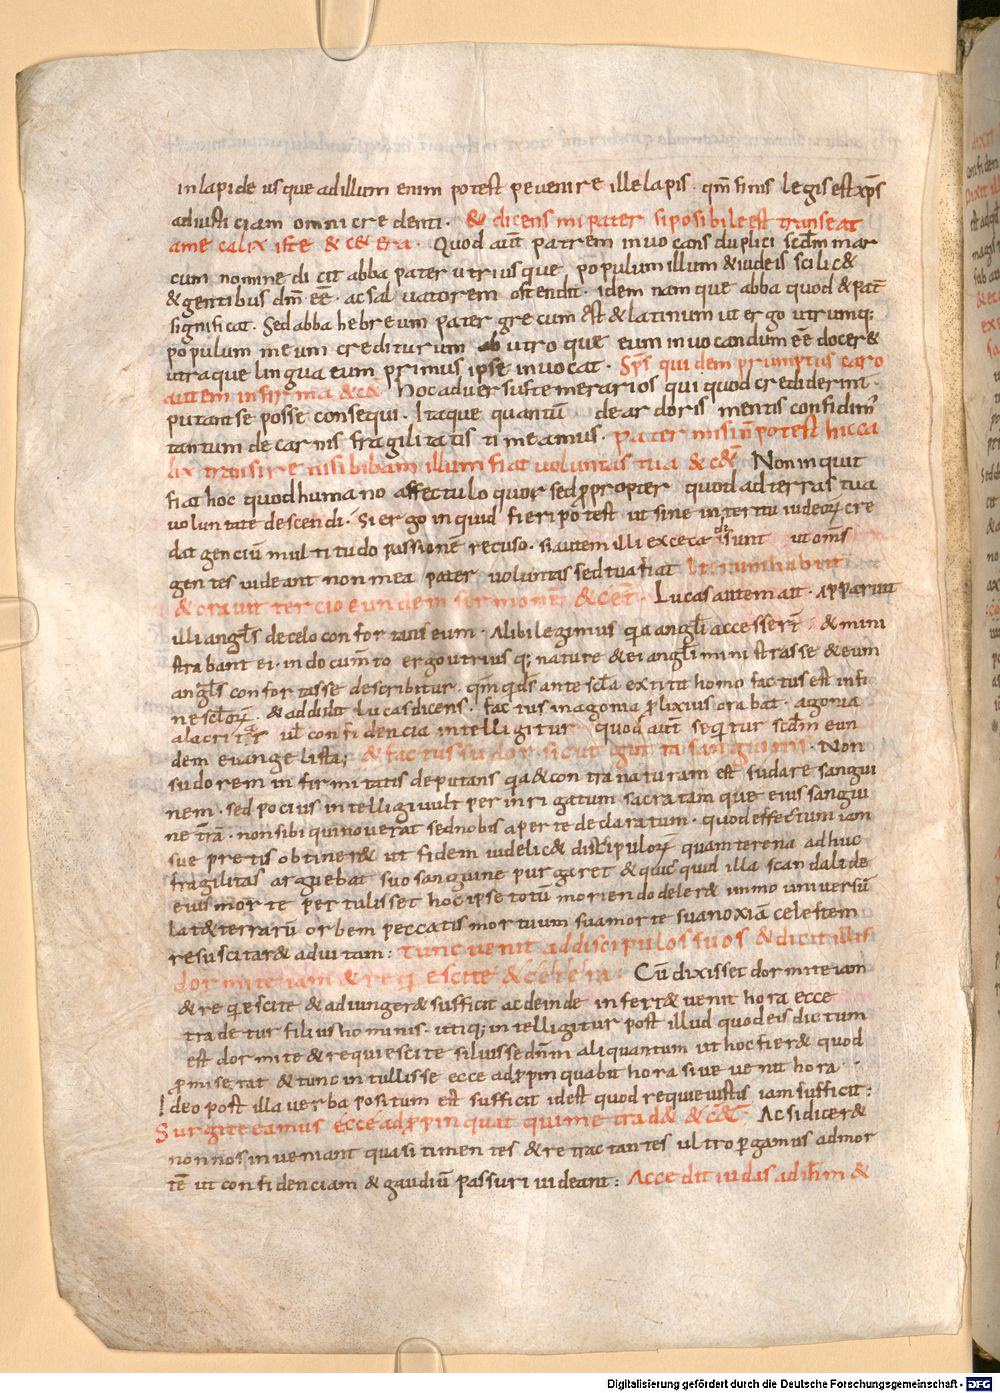 in lapide usque ad illum enim potest pevenire ille lapis · qm̄ finis legis est xp̄s
ad iusticiam omni credenti · & dicens mi pater si posibile est transeat
a me calix iste & cetera · Quod aut̄ patrem invocans duplici scdm̄ mar
cum nomine dicit abba pater utriusque populum illum & iudeis scilic&
& gentibus dm̄ eē · ac salvatorem ostendit · idem namque abba quod & pat̄
significat · Sed abba hebreum pater grecum est & latinum ut ergo utrumq;
populum meum crediturum ab utroque eum invocandum eē docer&
utraque lingua eum primus ipse invocat · Sp̄s quidem prumptus caro
autem infirma & c& · Hoc adversus temerarios qui quod crediderint ·
putant se posse consequi · Itaque quantū de ardoris mentis confidim̄
tantum de carnis fragilitatis timeamus · pater mi si n̄ potest hic ca
lix transire nisi bibam illum fiat voluntas tua & c& Non inquit
fiat hoc quod humano affectu loquor sed p̄propter quod ad terras tua
voluntate descendi · Si ergo inquid fieri potest ut sine interitu iudeoꝝ cre
dat genciū multitudo passionē recuso · si autem illi excecadi sunt ut om̄s
gentes videant non mea pater voluntas sed tua fiat Iterum habuit
& oravit tercio eundem sermonē & cet̄ · Lucas autem ait · apparuit
illi angl̄s de celo confortans eum · Alibi legimus q̄a angl̄i accessert̄ · & mini
strabant ei · in documto ergo utriusq; nature & ei angl̄i ministrasse & eum
angl̄s confortasse describitur · qm̄ qd̄s ante scl̄a extitit homo factus est in fi
ne scl̄oꝝ · & addidit Lucas dicens · factus in agonia p̄lixius orabat · agonia
alacritas ul̄ confidencia intelligitur quod aut̄ seq̄tur scdm̄ eun
dem evangelista; & factus sudor sicut gutta sanguinis · Non
sudorem infirmitatis deputans q̄a & contra naturam est sudare sangui
nem · sed pocius intelligi vult per inrigatum sacratamque eius sangui
ne tr̄ā · non sibi qui noverat sed nobis aperte declaratum · quod effectum iam
sue precis obtiner& ut fidem videlic& discipuloꝝ quam terena adhuc
fragilitas arguebat suo sanguine purgaret & quicquid illa scandali de
eius morte pertulisset hoc ipse totū moriendo deler& immo universū
lat& terrarū orbem peccatis mortuum sua morte sua noxiā celestem
resuscitar& ad vitam : Tunc venit ad discipulos suos & dicit illis
dormite iam & req̄escite & cetera : Cū dixisset dormite iam
& req̄escite & adiunger& sufficit ac deinde infert & venit hora ecce
tradetur filius hominis · utiq; intelligitur post illud quod eis dictum
est dormite & requiescite siluisse dn̄m aliquantum ut hoc fier& quod
p̄miserat & tunc intullisse ecce adp̄pinquabit hora sive venit hora
Ideo post illa verba positum est sufficit id est quod requievistis iam sufficit :
Surgite eamus ecce adp̄pinquat qui me trad& & c& Ac si dicer&
non nos inveniant quasi timentes & retractantes ultro p̄gamus ad mor
tē ut confidenciam & gaudiū passuri videant : Accedit iudas ad ih̄m &
Digitalisierung gefördert durch die Deutsche Forschungsgemeinschaft - DFG